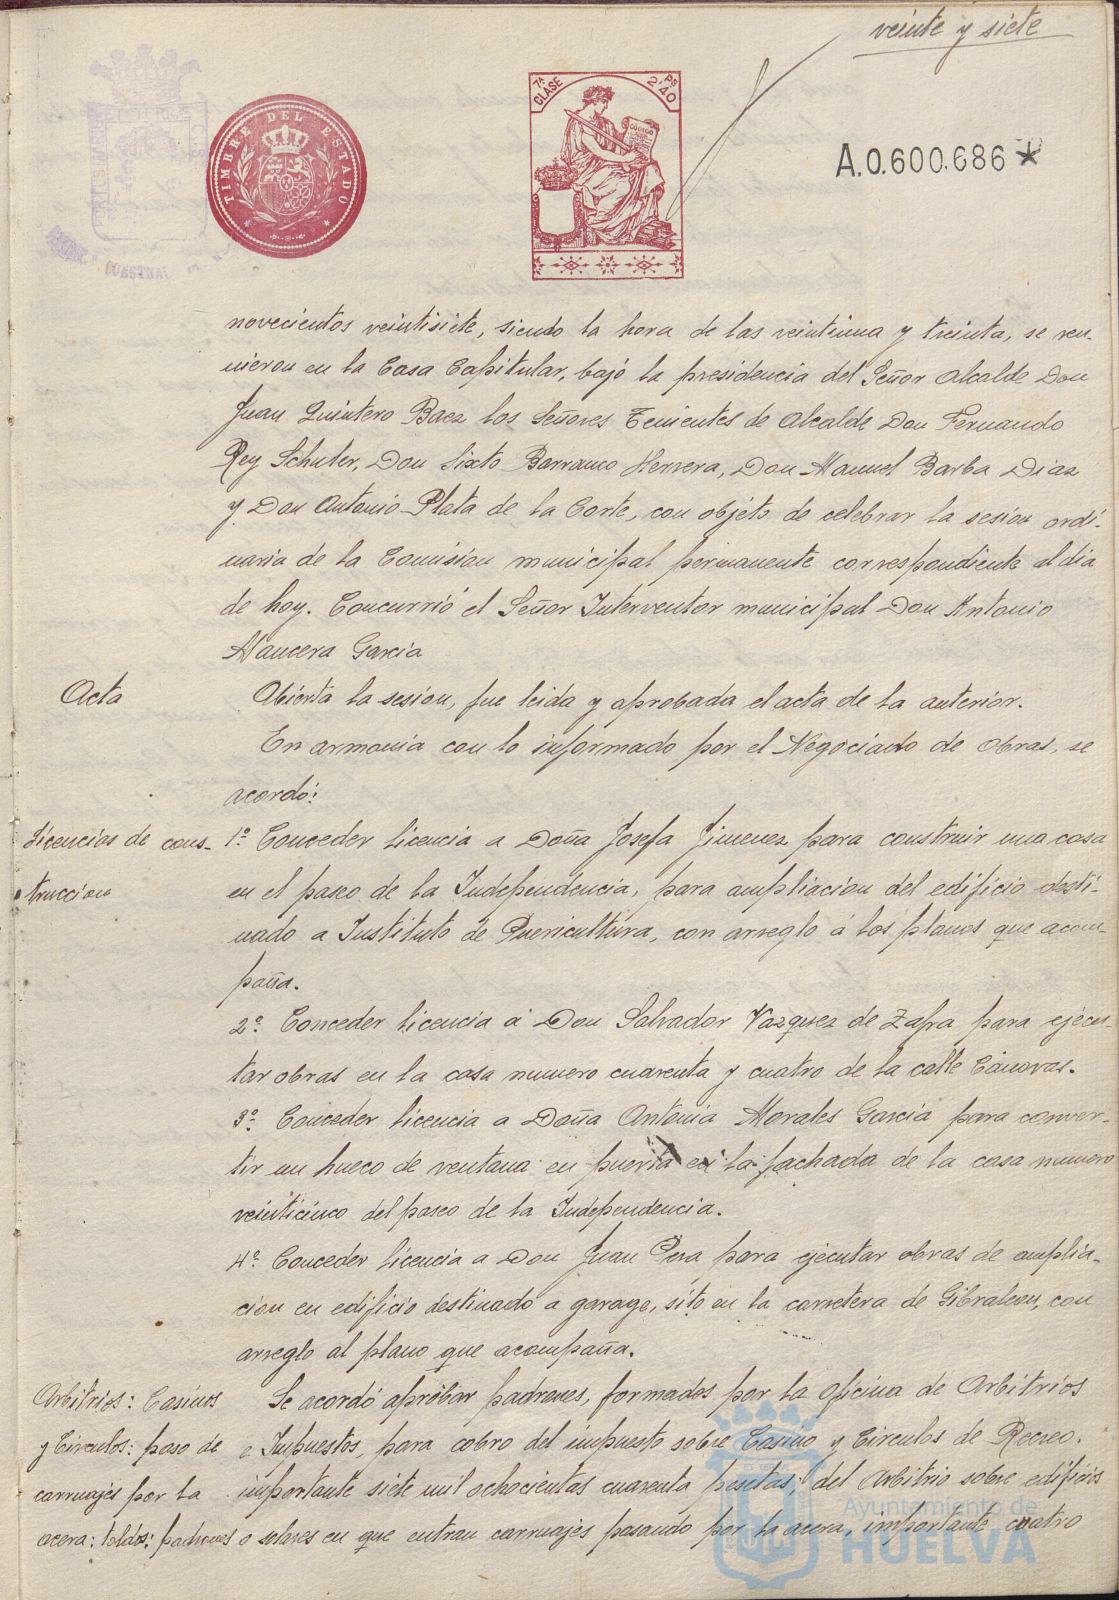 veinte y siete
TIMBRE DEL ESTADO
7ª CLASE
PS 2'40
CODIGO
A.0.600.686*
novecientos veintisiete, siendo la hora de las veintiuna y treinta, se reu-
nieron en la Casa Capitular, bajo la presidencia del Señor Alcalde Don
Juan Quintero Baez los Señores Tenientes de Alcalde Don Fernando
Rey Schuler, Don Sixto Barranco Herrera, Don Manuel Barba Diaz
y Don Antonio Plata de la Corte, con objeto de celebrar la sesion ordi-
naria de la Comision municipal permanente correspondiente al dia
de hoy. Concurrió el Señor Interventor municipal Don Antonio
Mancera Garcia
Acta
Abierta la sesion, fue leida y aprobada el acta de la anterior.
En armonia con lo informado por el Negociado de Obras, se
acordó:
Licencias de cons-
truccion
1º Conceder licencia a Doña Josefa Jimenez para construir una casa
en el paseo de la Independencia, para ampliacion del edificio desti-
nado a Instituto de Puericultura, con arreglo á los planos que acom-
paña.
2º Conceder licencia á Don Salvador Vazquez de Zafra para ejecu-
tar obras en la casa numero cuarenta y cuatro de la calle Cánovas.
3º Conceder licencia a Doña Antonia Morales Garcia para conver-
tir un hueco de ventana en puerta en la fachada de la casa numero
veinticinco del paseo de la Independencia.
4º Conceder licencia a Don Juan para ejecutar obras de amplia-
cion en edificio destinado a garage, sito en la carretera de Gibraleon, con
arreglo al plano que acompaña.
Arbitrios: Casinos
y Circulos: paso de
carruajes por la
acera: toldos: padrones
Se acordó aprobar padrones, formados por la Oficina de Arbitrios
e Impuestos, para cobro del impuesto sobre Casino y Circulos de Recreo.
importante siete mil ochocientas cuarenta pesetas; del Arbitrio sobre edificios
o solares en que entran carruajes pasando por la acera, importante cuatro
Ayuntamiento de
HUELVA